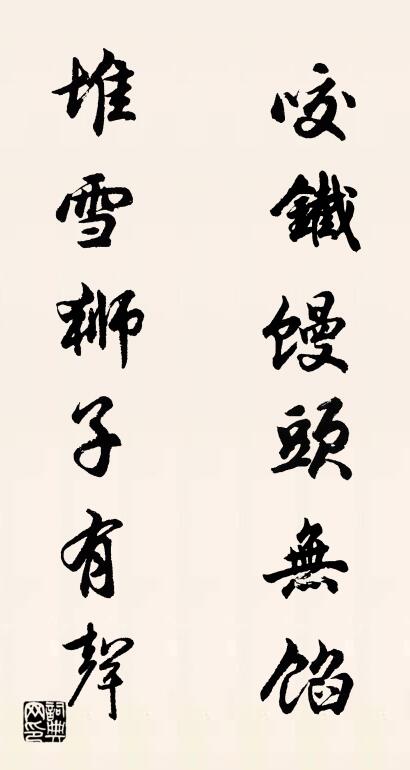 咬鐵饅頭無餡
堆雪獅子有聲
詞典网印